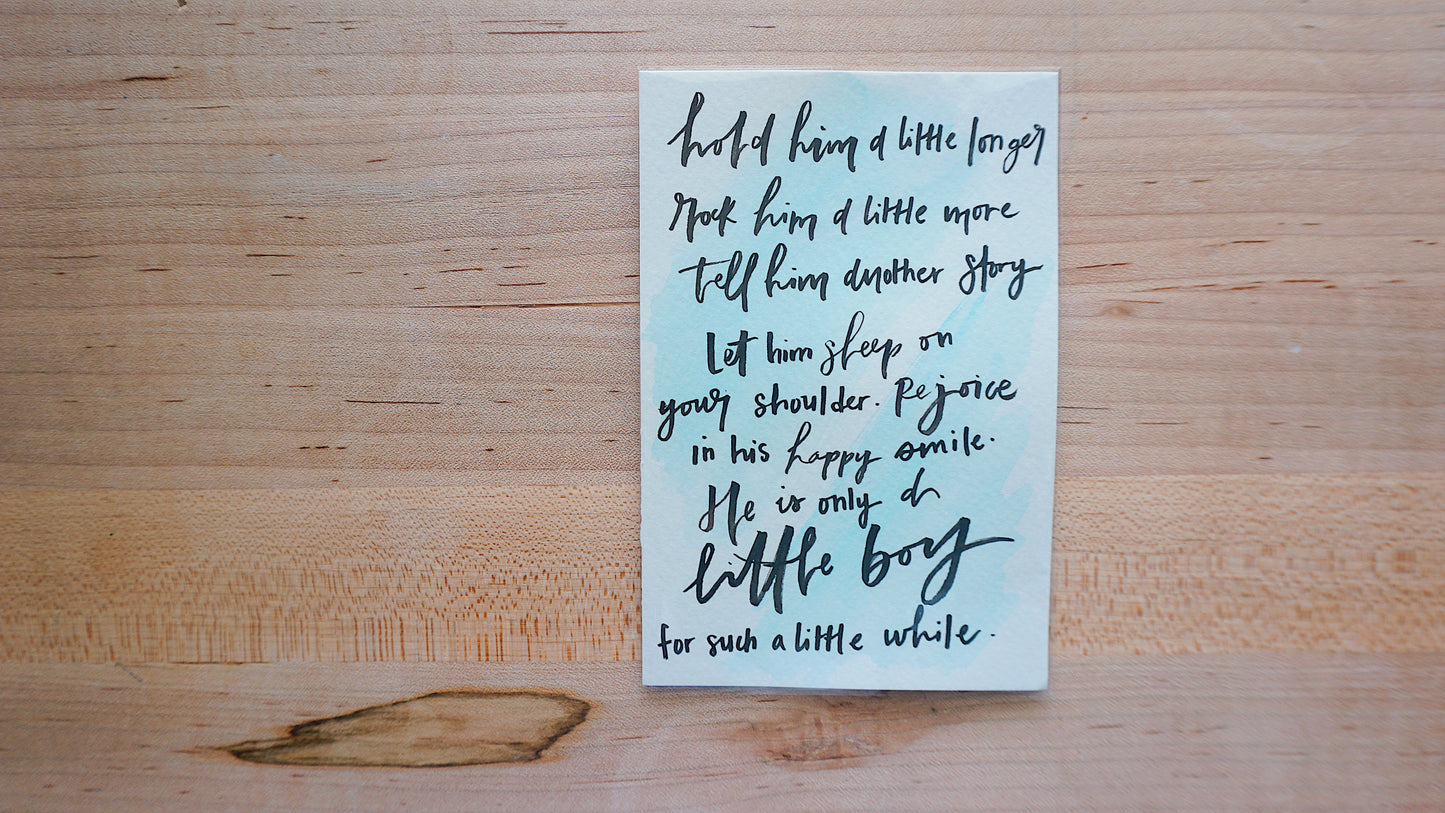 hold him a little longer
Rock him a little more
tell him another story
Let him sleep on
your shoulder. Rejoice
in his happy smile.
He is only a
little boy
for such a little while.